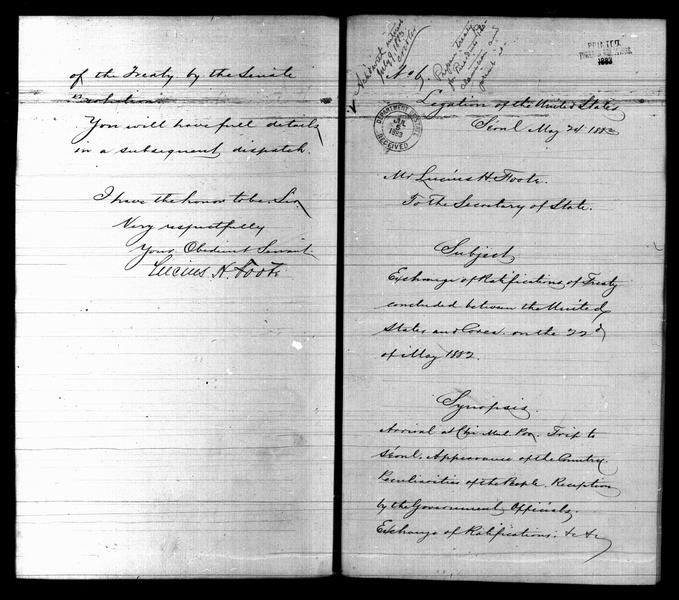 of the Treaty by the Senate
resolution
You will have full details
in a subsequent dispatch.
I have the honor to be, Sir
Very respectfully
Your Obedient Servant
Lucius H. Foote
No 6.
PRINTED
1883
DEPARTMENT OF STATE
JUL
5
1883
RECEIVED
Legation of the United States
Séoul May 24 1883
Mr Lucius H. Foote.
To the Secretary of State.
Subject
Exchange of Ratifications of Treaty
concluded between the United
States and Corea on the 22d
of May 1882.
Synopsis.
Arrival at Che-Mul-Poo. Trip to
Séoul. Appearance of the Country.
Peculiarities of the People. Reception
by the Government Officials.
Exchange of Ratifications. &c &c